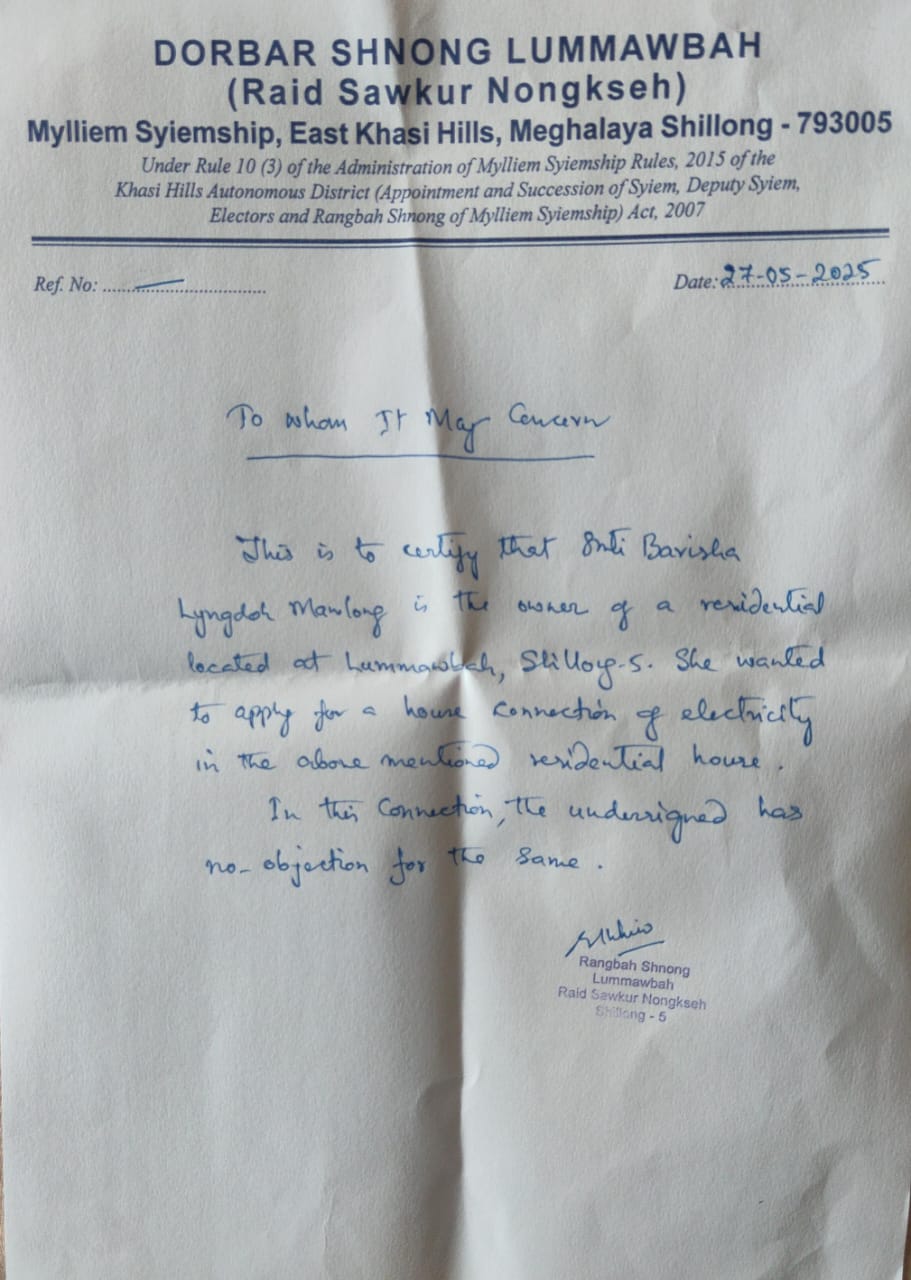 DORBAR SHNONG LUMMAWBAH
(Raid Sawkur Nongkseh)
Mylliem Syiemship, East Khasi Hills, Meghalaya Shillong - 793005
Under Rule 10 (3) of the Administration of Mylliem Syiemship Rules, 2015 of the
Khasi Hills Autonomous District (Appointment and Succession of Syiem, Deputy Syiem,
Electors and Rangbah Shnong of Mylliem Syiemship) Act, 2007
Ref. No: ..... — ..... Date: 27-05-2025
To whom It May Concern
This is to certify that Smti Barisha
Lyngdoh Mawlong is the owner of a residential
located at Lummawbah, Shillong-5. She wanted
to apply for a house connection of electricity
in the above mentioned residential house.
In this connection, the undersigned has
no-objection for the same.
Rangbah Shnong
Lummawbah
Raid Sawkur Nongkseh
Shillong - 5